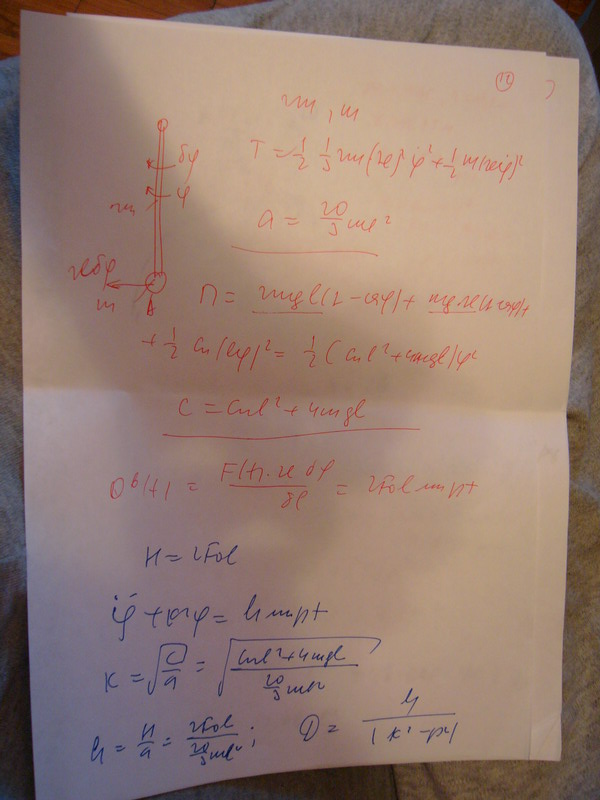 12
m, m
T = 1/2 1/3 2m(2l)² φ̇² + 1/2 m(2lφ̇)²
δφ
φ
2m
a = 20/3 ml²
2lδφ
m
A
П = 2mgl(1 - cosφ) + mg2l(1 - cosφ) +
+ 1/2 c₁(lφ)² = 1/2 (c₁l² + 4mgl)φ²
c = c₁l² + 4mgl
Q^B(t) = F(t)·2l δφ / δφ = 2F₀l sin pt
H = 2F₀l
φ̈ + k²φ = h sin pt
k = √(c/a) = √((c₁l² + 4mgl) / (20/3 ml²))
h = H/a = 2F₀l / (20/3 ml²); D = h / |k² - p²|